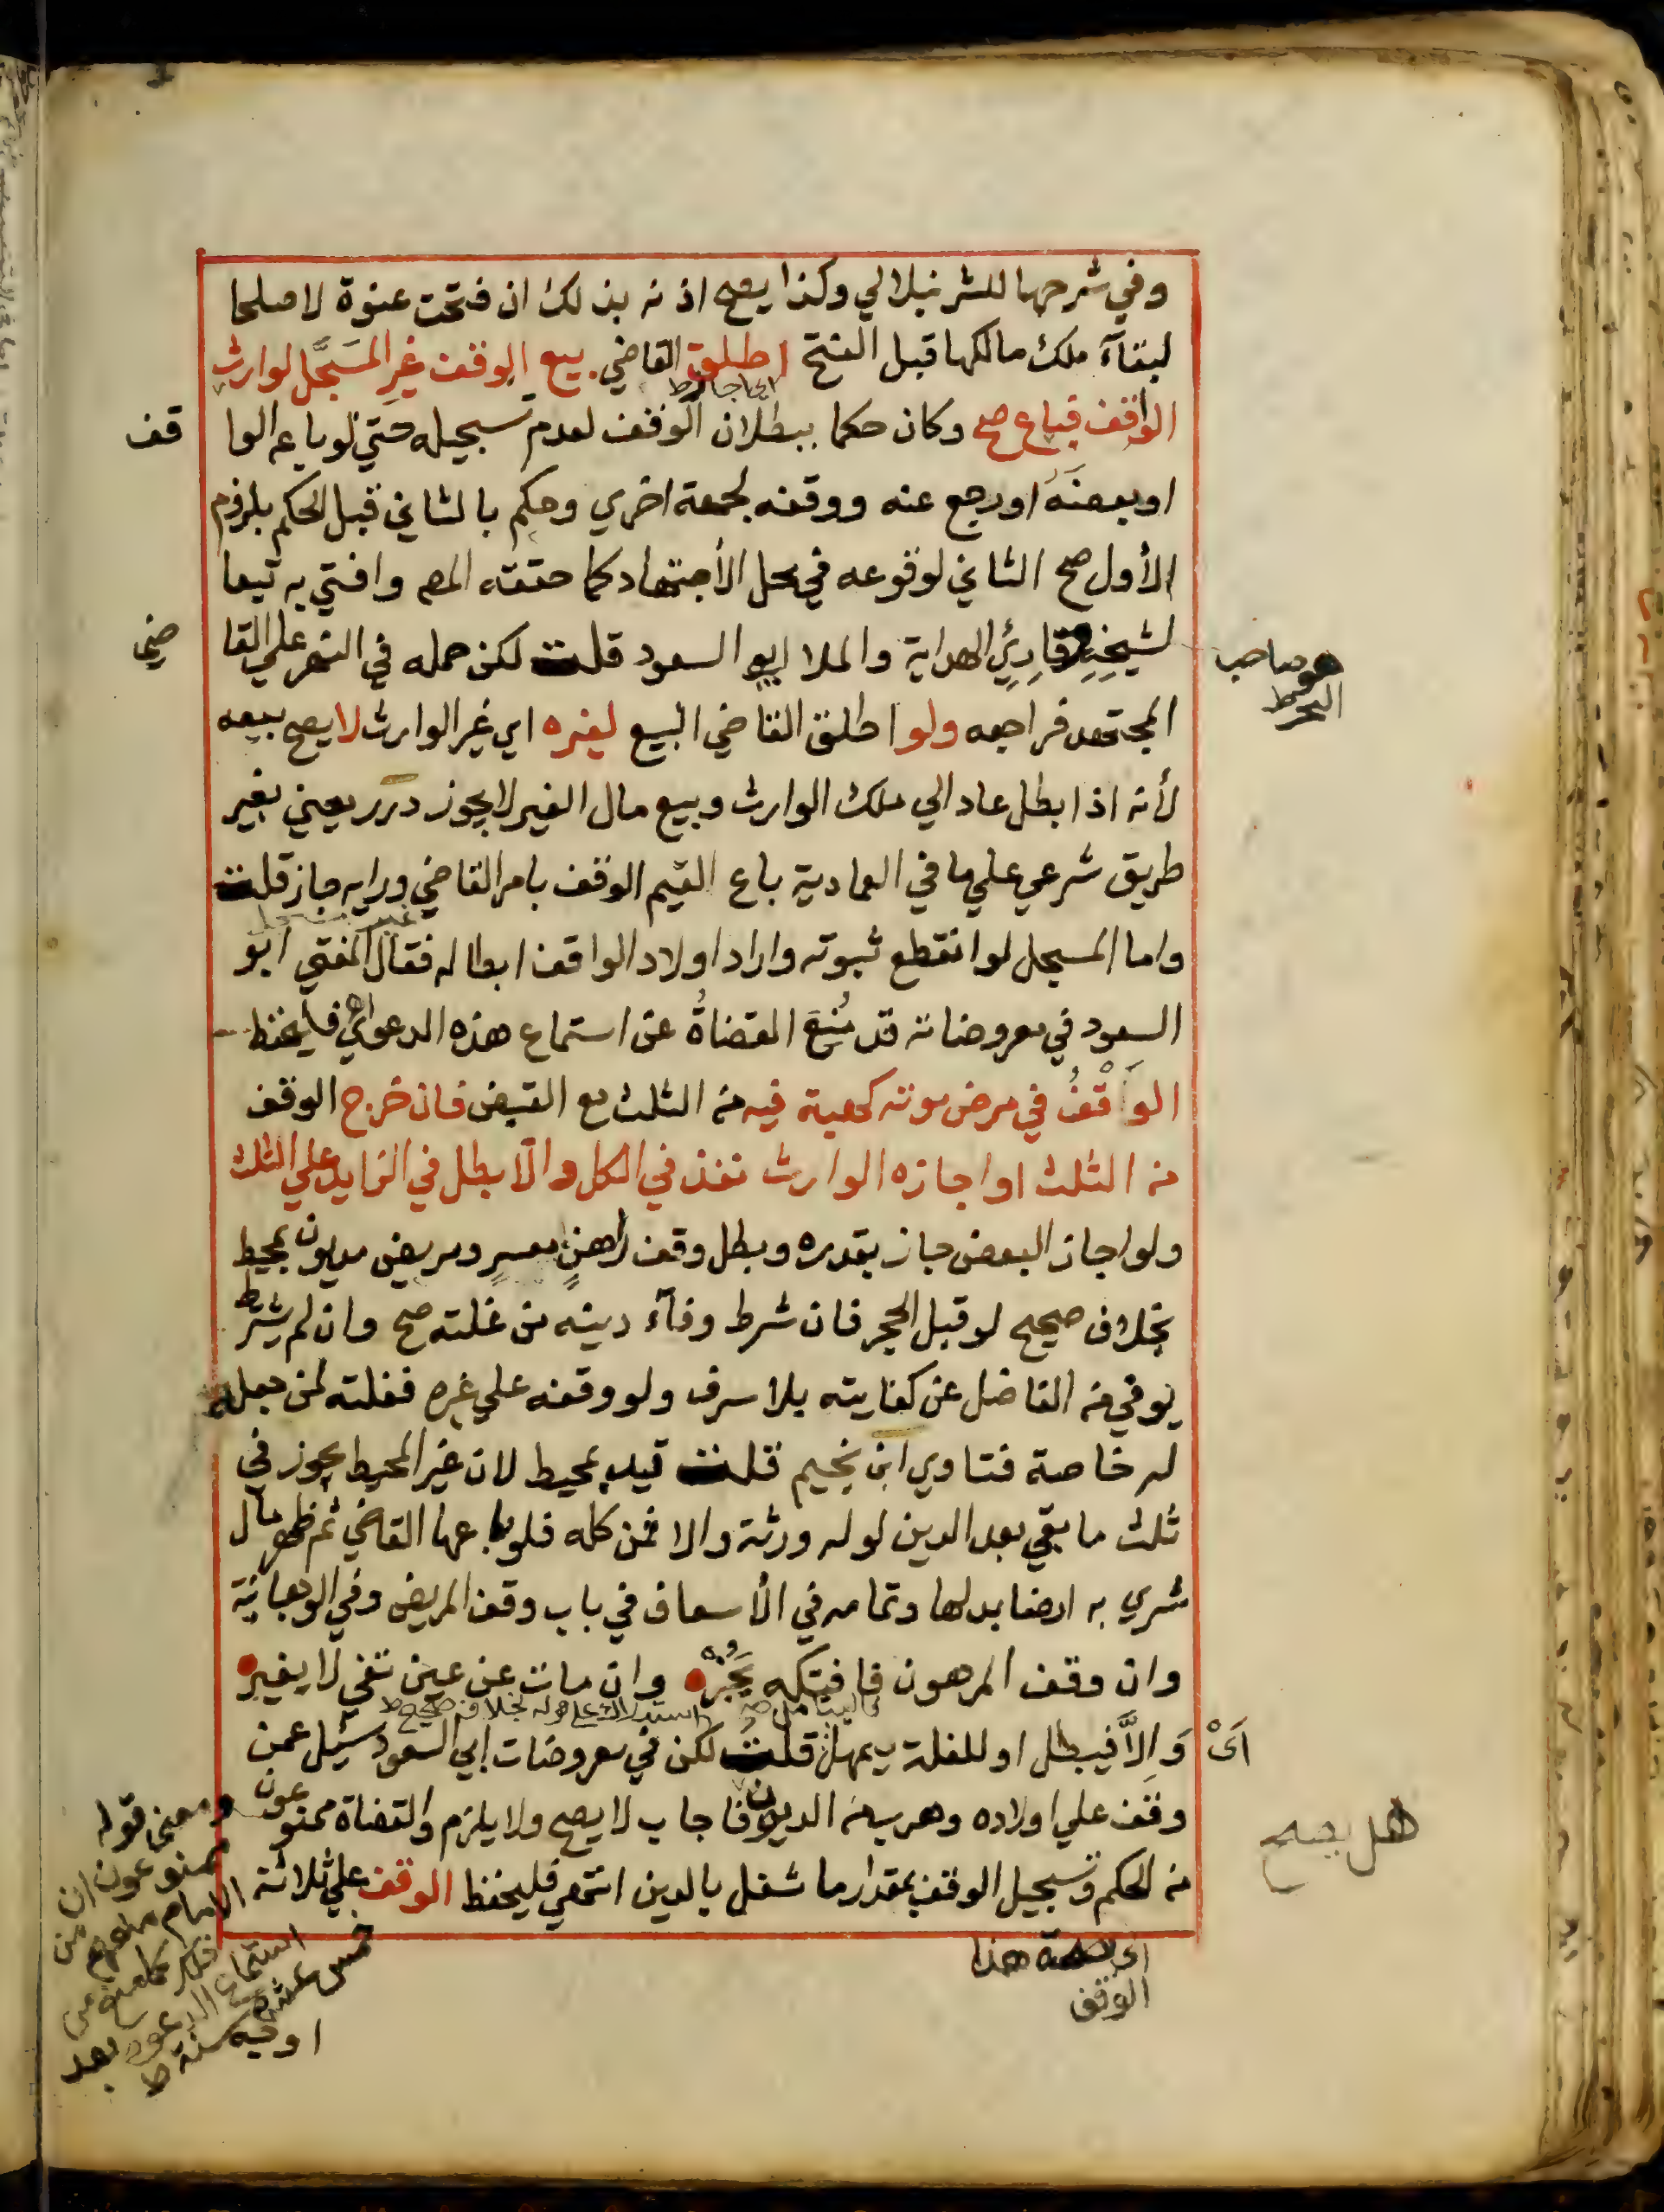 وفي شرحها للشرنبلالي وكذا يصح اذنه بذلك ان فتحت عنوة لا صلحا
لبقآء ملك مالكها قبل الفتح اطلق القاضي بيع الوقف غير المسَجَّل لوارث
الواقف فباع صح وكان حكما ببطلان الوقف لعدم تسجيله حتي لو باعه الوا
قف
او بعضَه او رجع عنه ووقفه لجهة اخري وحكم بالثاني قبل الحكم بلزوم
الأول صح الثاني لوقوعه في محل الأجتهاد كما حققه المص وافتي به تبعا
لشيخِهِ وقارِئِ الهداية والملا ابو السعود قلت لكن حمله في النهر علي القا
ضي
هو صاحب
البحر ط
المجتهد فراجعه ولو اطلق القاضي البيع لغيره اي غير الوارث لا يصح بيعه
لأنه اذا بطل عاد الي ملك الوارث وبيع مال الغير لا يجوز درر يعني بغير
طريق شرعي علي ما في العمادية باع القيم الوقف بامر القاضي ورايه جاز قلت
واما المسجل لو انقطع ثبوته واراد اولاد الواقف ابطاله فقال المفتي ابو
السعود في معروضاته قد مُنِعَ القضاةُ عن استماع هذه الدعوي فليحفظ
الوَقْفُ في مرض موته كهبة فيه من الثلث مع القبض فان خرج الوقف
من الثلث او اجازه الوارث نفذ في الكل والّا بطل في الزايد علي الثلث
ولو اجاز البعض جاز بقدره وبطل وقف راهنٍ معسرٍ ومريض مديون بمحيط
بخلاف صحيح لو قبل الحجر فان شرط وفآء دينه من غلته صح وان لم يشرط
يوفي من الفاضل عن كفايته بلا سرف ولو وقفه علي غيره فغلته لمن جعله
له خاصة فتاوي ابن نجيم قلت قيد بمحيط لان غير المحيط يجوز في
ثلث ما بقي بعد الدين لو له ورثة والا فمن كله فلو باعها القاضي ثم ظهر مال
شري به ارضا بدلها وتمامه في الأسعاف في باب وقف المريض وفي الوهبانية
وان وقف المرهون فافتكه يَجُزْ وان مات عن عين تفي لا يغير
استدراك علي قوله بخلاف صحيح ط
اَىْ وَاِلَّا فيبطل او للغلة يمهل قلت لكن في معروضات ابي السعود سئل عمن
وقف علي اولاده وهرب من الديون فاجاب لا يصح ولا يلزم والقضاة ممنوعون
هل يصح
من الحكم وتسجيل الوقف بمقدار ما شغل بالدين انتهي فليحفظ الوقف علي ثلاثة
اى بصحة هذا
الوقف
ومعنى قوله
ممنوعون ان
الامام منعهم من
ذلك كما منع من
استماع الدعوى بعد
خمس عشرة سنة ط
اوجه